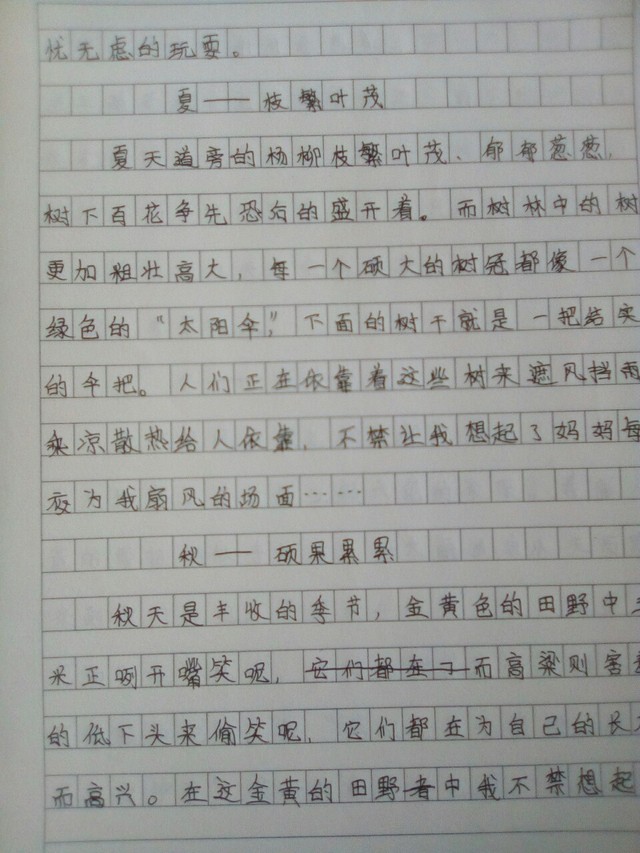 忧无虑的玩耍。
夏——枝繁叶茂
夏天道旁的杨柳枝繁叶茂、郁郁葱葱,
树下百花争先恐后的盛开着。而树林中的树
更加粗壮高大,每一个硕大的树冠都像一个
绿色的“太阳伞”,下面的树干就是一把结实
的伞把。人们正在依靠着这些树来遮风挡雨
乘凉散热给人依靠,不禁让我想起了妈妈每
夜为我扇风的场面……
秋——硕果累累
秋天是丰收的季节,金黄色的田野中
米正咧开嘴笑呢,它们都在了而高梁则害
的低下头来偷笑呢,它们都在为自己的长
而高兴。在这金黄的田野者中我不禁想起